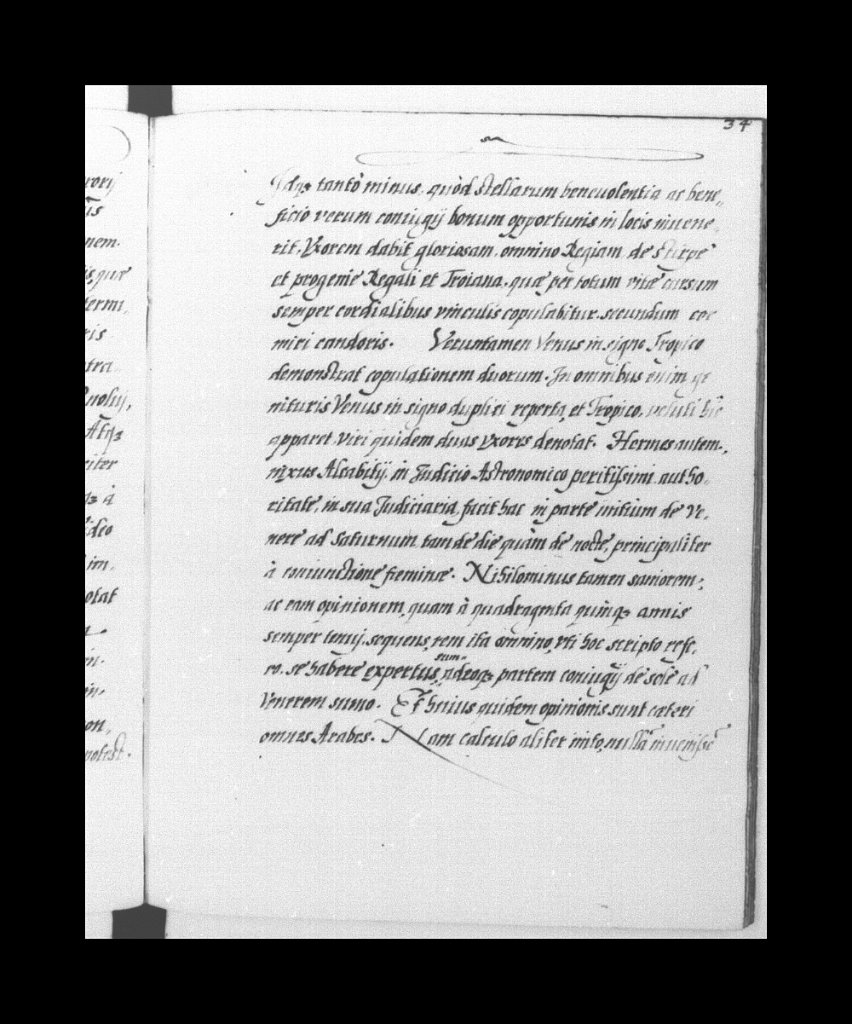 34
Idq3 tantò minus, quòd stellarum beneuolentia ac bene,
ficio verum coniugij bonum opportunis in locis inuene,
rit, Vxorem dabit gloriosam, omnino Regiam, de stirpe
et progenie Regali et Troiana, quæ per totum vitæ cursum
semper cordialibus vinculis copulabitur, secundum
miri candoris. Veruntamen Venus in signo Tropico
demonstrat copulationem duorum. In omnibus enim ge
nituris Venus in signo duplici reperta, et Tropico, veluti hic
apparet, viri quidem duas vxores denotat. Hermes autem,
nixus Alcabitij, in Iudicio Astronomico peritissimi autho,
ritate, in sua Iudiciaria facit hac in parte initium de Ve,
nere ad Saturnum tam de die quàm de nocte, principaliter
à coniunctione
Nihilominus tamen saniorem,
ac eam opinionem, quam à quadraginta quinq3 annis
semper tenuj, sequens, rem ita omnino, vti hoc scripto refe,
ro, se habere expertus sum, adeoq3 partem coniugij de sole ad
Venerem sumo. Et huius quidem opinionis sunt cæteri
omnes Arabes. Nam calculo aliter inito, nullã inuenisse
rorij
nem.
quæ
termi,
ris
Atq3
riter
à
ideo
im.
otat
in.
on,
potest.